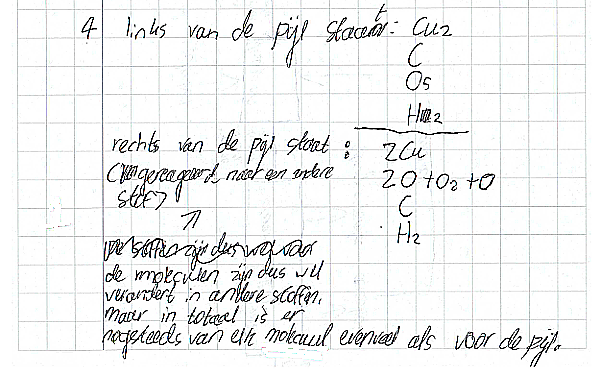 4 links van de pijl staat: Cu2
C
O5
H2
rechts van de pijl staat : 2Cu
(gereageerd naar een andere 2O + O2 + O
stof) C
H2
de moleculen zijn dus wel
verandert in andere stoffen,
maar in totaal is er
nogsteeds van elk molecuul evenveel als voor de pijl.